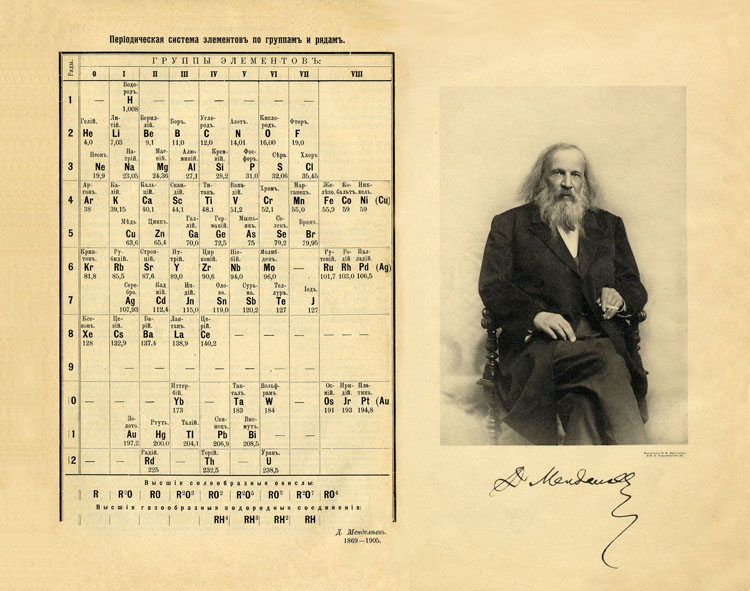 Періодическая система элементовъ по группамъ и рядамъ.
Ряды.
ГРУППЫ ЭЛЕМЕНТОВЪ:
0 I II III IV V VI VII VIII
Водо-
родъ.
1 — H — — — — — —
1,008
Гелій. Ли- Берил- Боръ. Угле- Азотъ. Кисло- Фторъ.
тій. лій. родъ. родъ.
2 He Li Be B C N O F
4,0 7,03 9,1 11,0 12,0 14,01 16,00 19,0
Неонъ. На- Маг- Алю- Крем- Фос- Сѣра. Хлоръ
трій. ній. миній. ній. форъ.
3 Ne Na Mg Al Si P S Cl
19,9 23,05 24,36 27,1 28,2 31,0 32,06 35,45
Ар- Ка- Каль- Скан- Ти- Вана- Хромъ. Мар- Желѣ- Ко- Ник-
гонъ. лій. цій. дій. танъ. дій. ганецъ. зо. бальтъ. кель.
4 Ar K Ca Sc Ti V Cr Mn Fe Co Ni (Cu)
38 39,15 40,1 44,1 48,1 51,2 52,1 55,0 55,9 59 59
Мѣдь Цинкъ. Гал- Гер- Мышь- Се- Бромъ.
лій. маній. якъ. ленъ.
5 Cu Zn Ga Ge As Se Br
63,6 65,4 70,0 72,5 75 79,2 79,95
Крип- Ру- Строн- Ит- Цир- Ніо- Молиб- Ру- Ро- Пал-
тонъ. бидій. цій. трій. коній. бій. денъ. теній. дій ладій.
6 Kr Rb Sr Y Zr Nb Mo — Ru Rh Pd (Ag)
81,8 85,5 87,6 89,0 90,6 94,0 96,0 101,7 103,0 106,5
Сереб- Кад- Ин- Оло- Сурь- Тел- Іодъ.
ро. мій. дій. во. ма. луръ.
7 Ag Cd Jn Sn Sb Te J
107,93 112,4 115,0 119,0 120,2 127 127
Ксе- Це- Ба- Лан- Це-
нонъ. зій. рій. танъ. рій.
8 Xe Cs Ba La Ce — — — — — —
128 132,9 137,4 138,9 140,2
9 — — — — — — —
Иттер- Тан- Вольф- Ос- Ири- Пла-
бій. талъ. рамъ. мій. дій. тина.
10 — — — Yb — Ta W — Os Jr Pt (Au
173 183 184 191 193 194,8
Зо- Ртуть. Талій. Сви- Вис-
лото. нецъ. мутъ.
11 Au Hg Tl Pb Bi — —
197,2 200,0 204,1 206,9 208,5
Радій. Торій. Уранъ.
12 — — Rd — Th — U
225 232,5 238,5
Высшіе солеобразные окислы:
R R²O RO R²O³ RO² R²O⁵ RO³ R²O⁷ RO⁴
Высшія газообразныя водородныя соединенія:
RH⁴ RH³ RH² RH
Д. Менделѣевъ.
1869—1905.
Д. Менделѣевъ